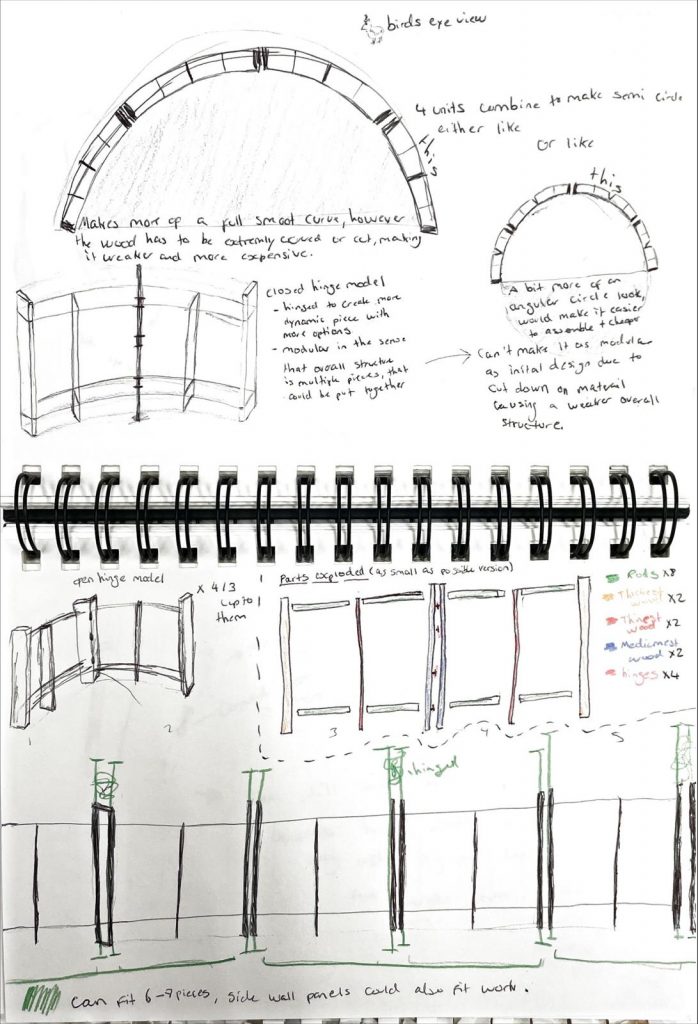 birds eye view
4 units combine to make semi circle
either like
this
or like
this
Makes more of a full smoot curve, however
the wood has to be extremly curved or cut, making
it weaker and more expensive.
A bit more of an
angular circle look,
would make it easier
to assemble + cheaper
closed hinge model
- hinged to create more
dynamic piece with
more options
- modular in the sense
that overall structure
is multiple pieces, that
could be put together
Can't make it as modular
as inital design due to
cut down on material
causing a weaker overall
structure.
open hinge model
x 4/3
(up to
them
1
2
Parts exploded (as small as possible version)
3
4
5
Rods x8
Thickest
wood x2
Thinest
wood x2
Mediumest
wood x2
hinges x4
hinged
Can fit 6-9 pieces, side wall panels could also fit work.